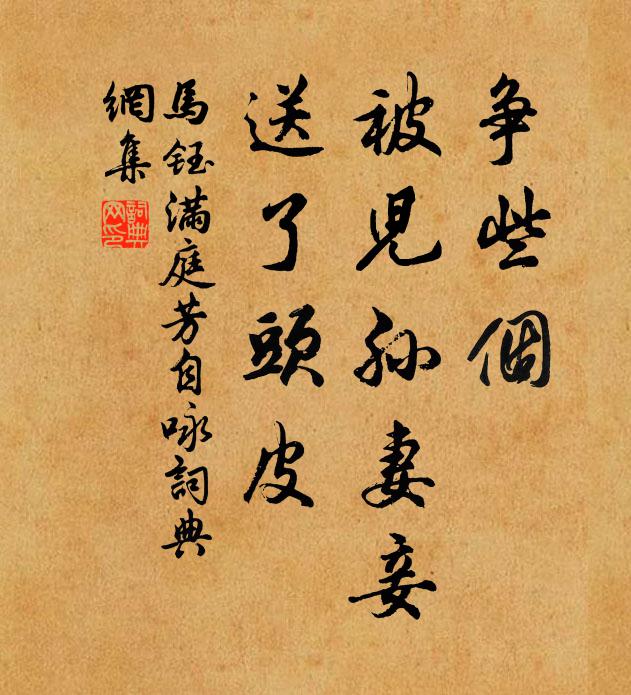 争些個
被児孫妻妾
送了頭皮
馬鈺滿庭芳自咏詞典
網集
詞典
网印